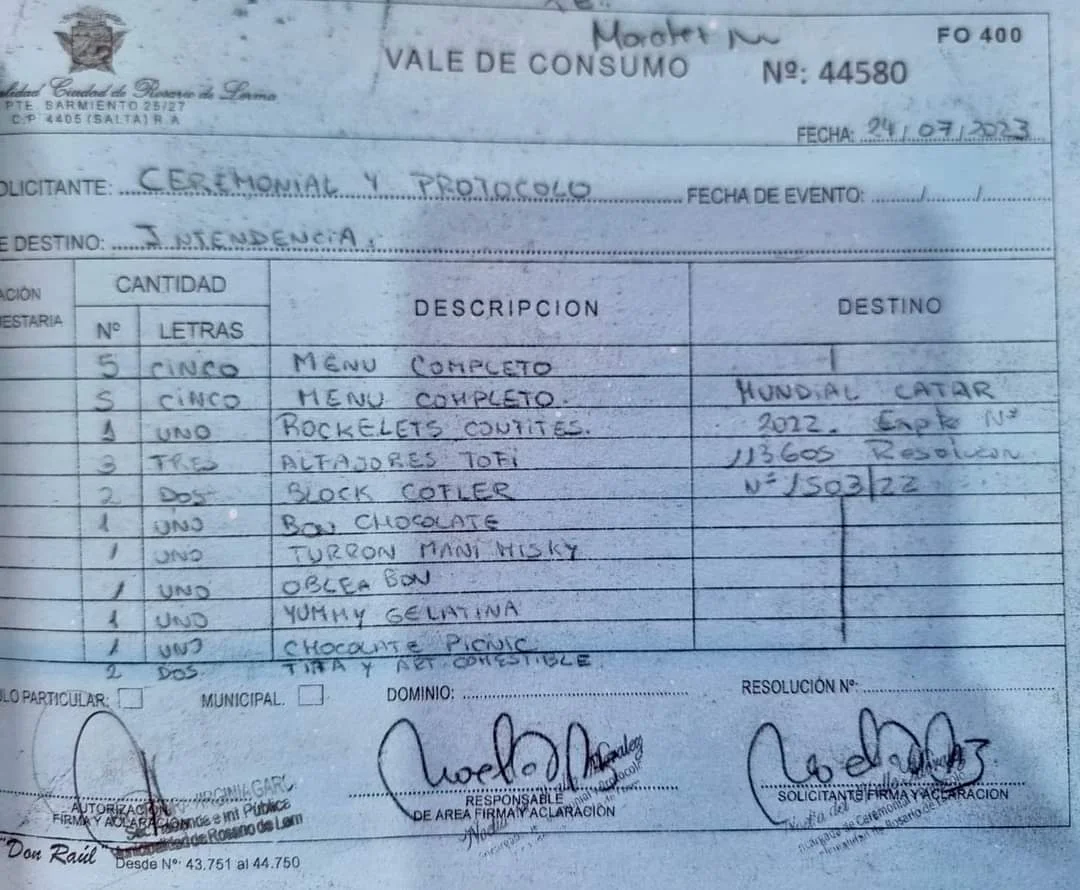 Morales M
FO 400
VALE DE CONSUMO
Nº: 44580
alidad Ciudad de Rosario de Lerma
PTE. SARMIENTO 25/27
C.P. 4405 (SALTA) R.A
FECHA: 24/07/2023
OLICITANTE: CEREMONIAL Y PROTOCOLO FECHA DE EVENTO: ....../....../......
E DESTINO: INTENDENCIA.
ACIÓN CANTIDAD DESCRIPCION DESTINO
ESTARIA Nº LETRAS
5 CINCO MENU COMPLETO
5 CINCO MENU COMPLETO. MUNDIAL CATAR
1 UNO ROCKELETS CONTITES. 2022. Expte Nº
3 TRES ALFAJORES TOFI 113605 Resolucion
2 DOS BLOCK COFLER Nº 1503/22
1 UNO BON CHOCOLATE
1 UNO TURRON MANI WISKY
1 UNO OBLEA BON
1 UNO YUMMY GELATINA
1 UNO CHOCOLATE PICNIC
2 DOS TITA Y ART. COMESTIBLE
LO PARTICULAR: MUNICIPAL. DOMINIO: RESOLUCIÓN Nº
AUTORIZACION
FIRMA Y ACLARACIÓN
VIRGINIA GAR
e Int Pública
Municipalidad de Rosario de Lerm
RESPONSABLE
DE AREA FIRMA Y ACLARACIÓN
SOLICITANTE FIRMA Y ACLARACION
de Ceremonial
"Don Raúl" Desde Nº: 43.751 al 44.750